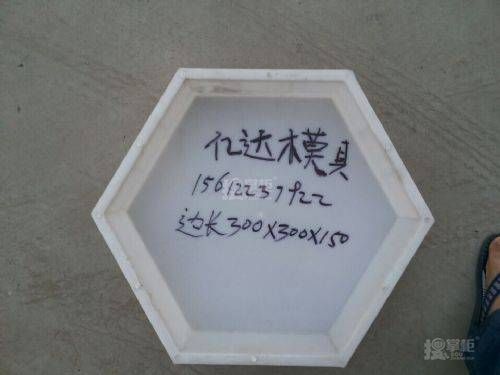 亿达模具
15612237922
边长300X300X150
搜掌柜